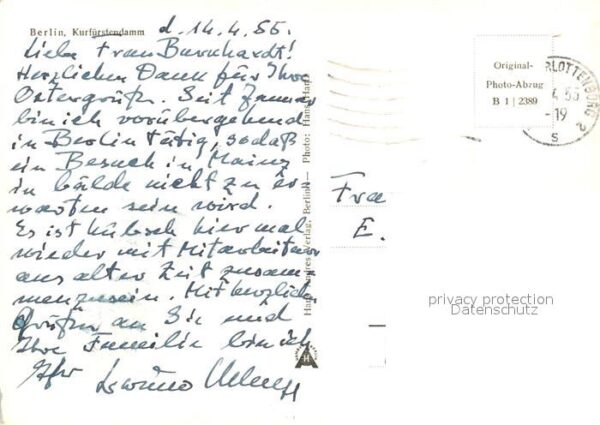 Berlin, Kurfürstendamm
d. 14.4.55.
Liebe Frau Burkhardt!
Herzlichen Dank für Ihre
Ostergrüße. Seit Januar
bin ich vorübergehend
in Berlin tätig, sodaß
ein Besuch in Mainz
in bälde nicht zu er
warten sein wird.
Es ist hübsch hier mal
wieder mit Mitarbeitern
aus alter Zeit zusam
menzusein. Mit herzlichen
Grüßen an Sie und
Ihre Familie bin ich
Ihr
Hans Andres Verlag, Berlin — Photo: Hans Hartz
Original-
Photo-Abzug
B 1 | 2389
RLOTTENBURG 2
4 55
-19
s
Frau
E.
privacy protection
Datenschutz